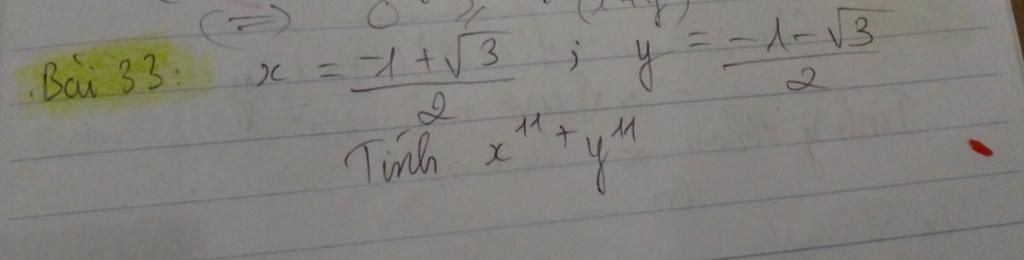 (=) 0 ≥ (x+y)
Bài 33: x = \frac{-1+\sqrt{3}}{2} ; y = \frac{-1-\sqrt{3}}{2}
Tính x^{11} + y^{11}